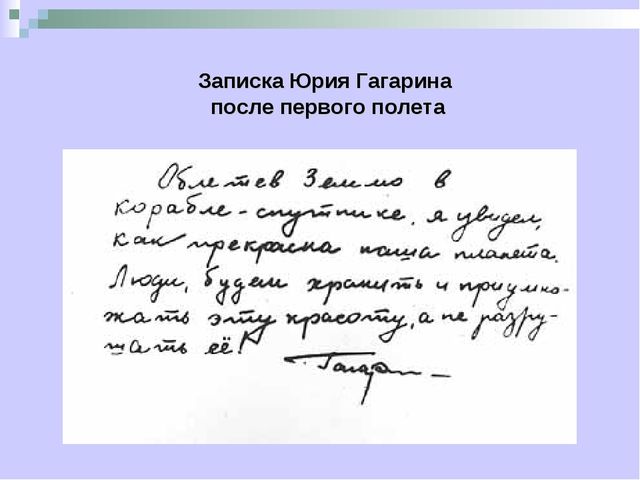 Записка Юрия Гагарина
после первого полета
Облетев Землю в
корабле-спутнике, я увидел,
как прекрасна наша планета.
Люди, будем хранить и приумно-
жать эту красоту, а не разру-
шать её!
Гагарин